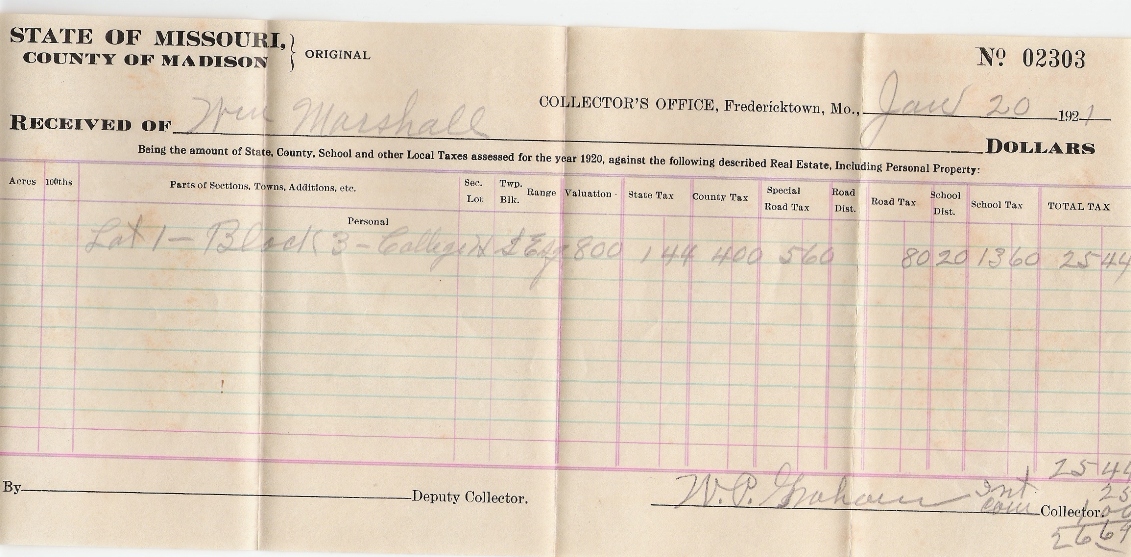 STATE OF MISSOURI, } ORIGINAL
COUNTY OF MADISON
Nº 02303
COLLECTOR'S OFFICE, Fredericktown, Mo., Jan 20 1921
RECEIVED OF Wm Marshall DOLLARS
Being the amount of State, County, School and other Local Taxes assessed for the year 1920, against the following described Real Estate, Including Personal Property:
Acres 100ths Parts of Sections, Towns, Additions, etc. Sec. Lot Twp. Blk. Range Valuation State Tax County Tax Special Road Tax Road Dist. Road Tax School Dist. School Tax TOTAL TAX
Personal
Lot 1 - Block 3 - College 800 1 44 4 00 5 60 80 20 13 60 25 44
25 44
Int 25
Com 1.00
26 69
By Deputy Collector.
W. P. Graham Collector.